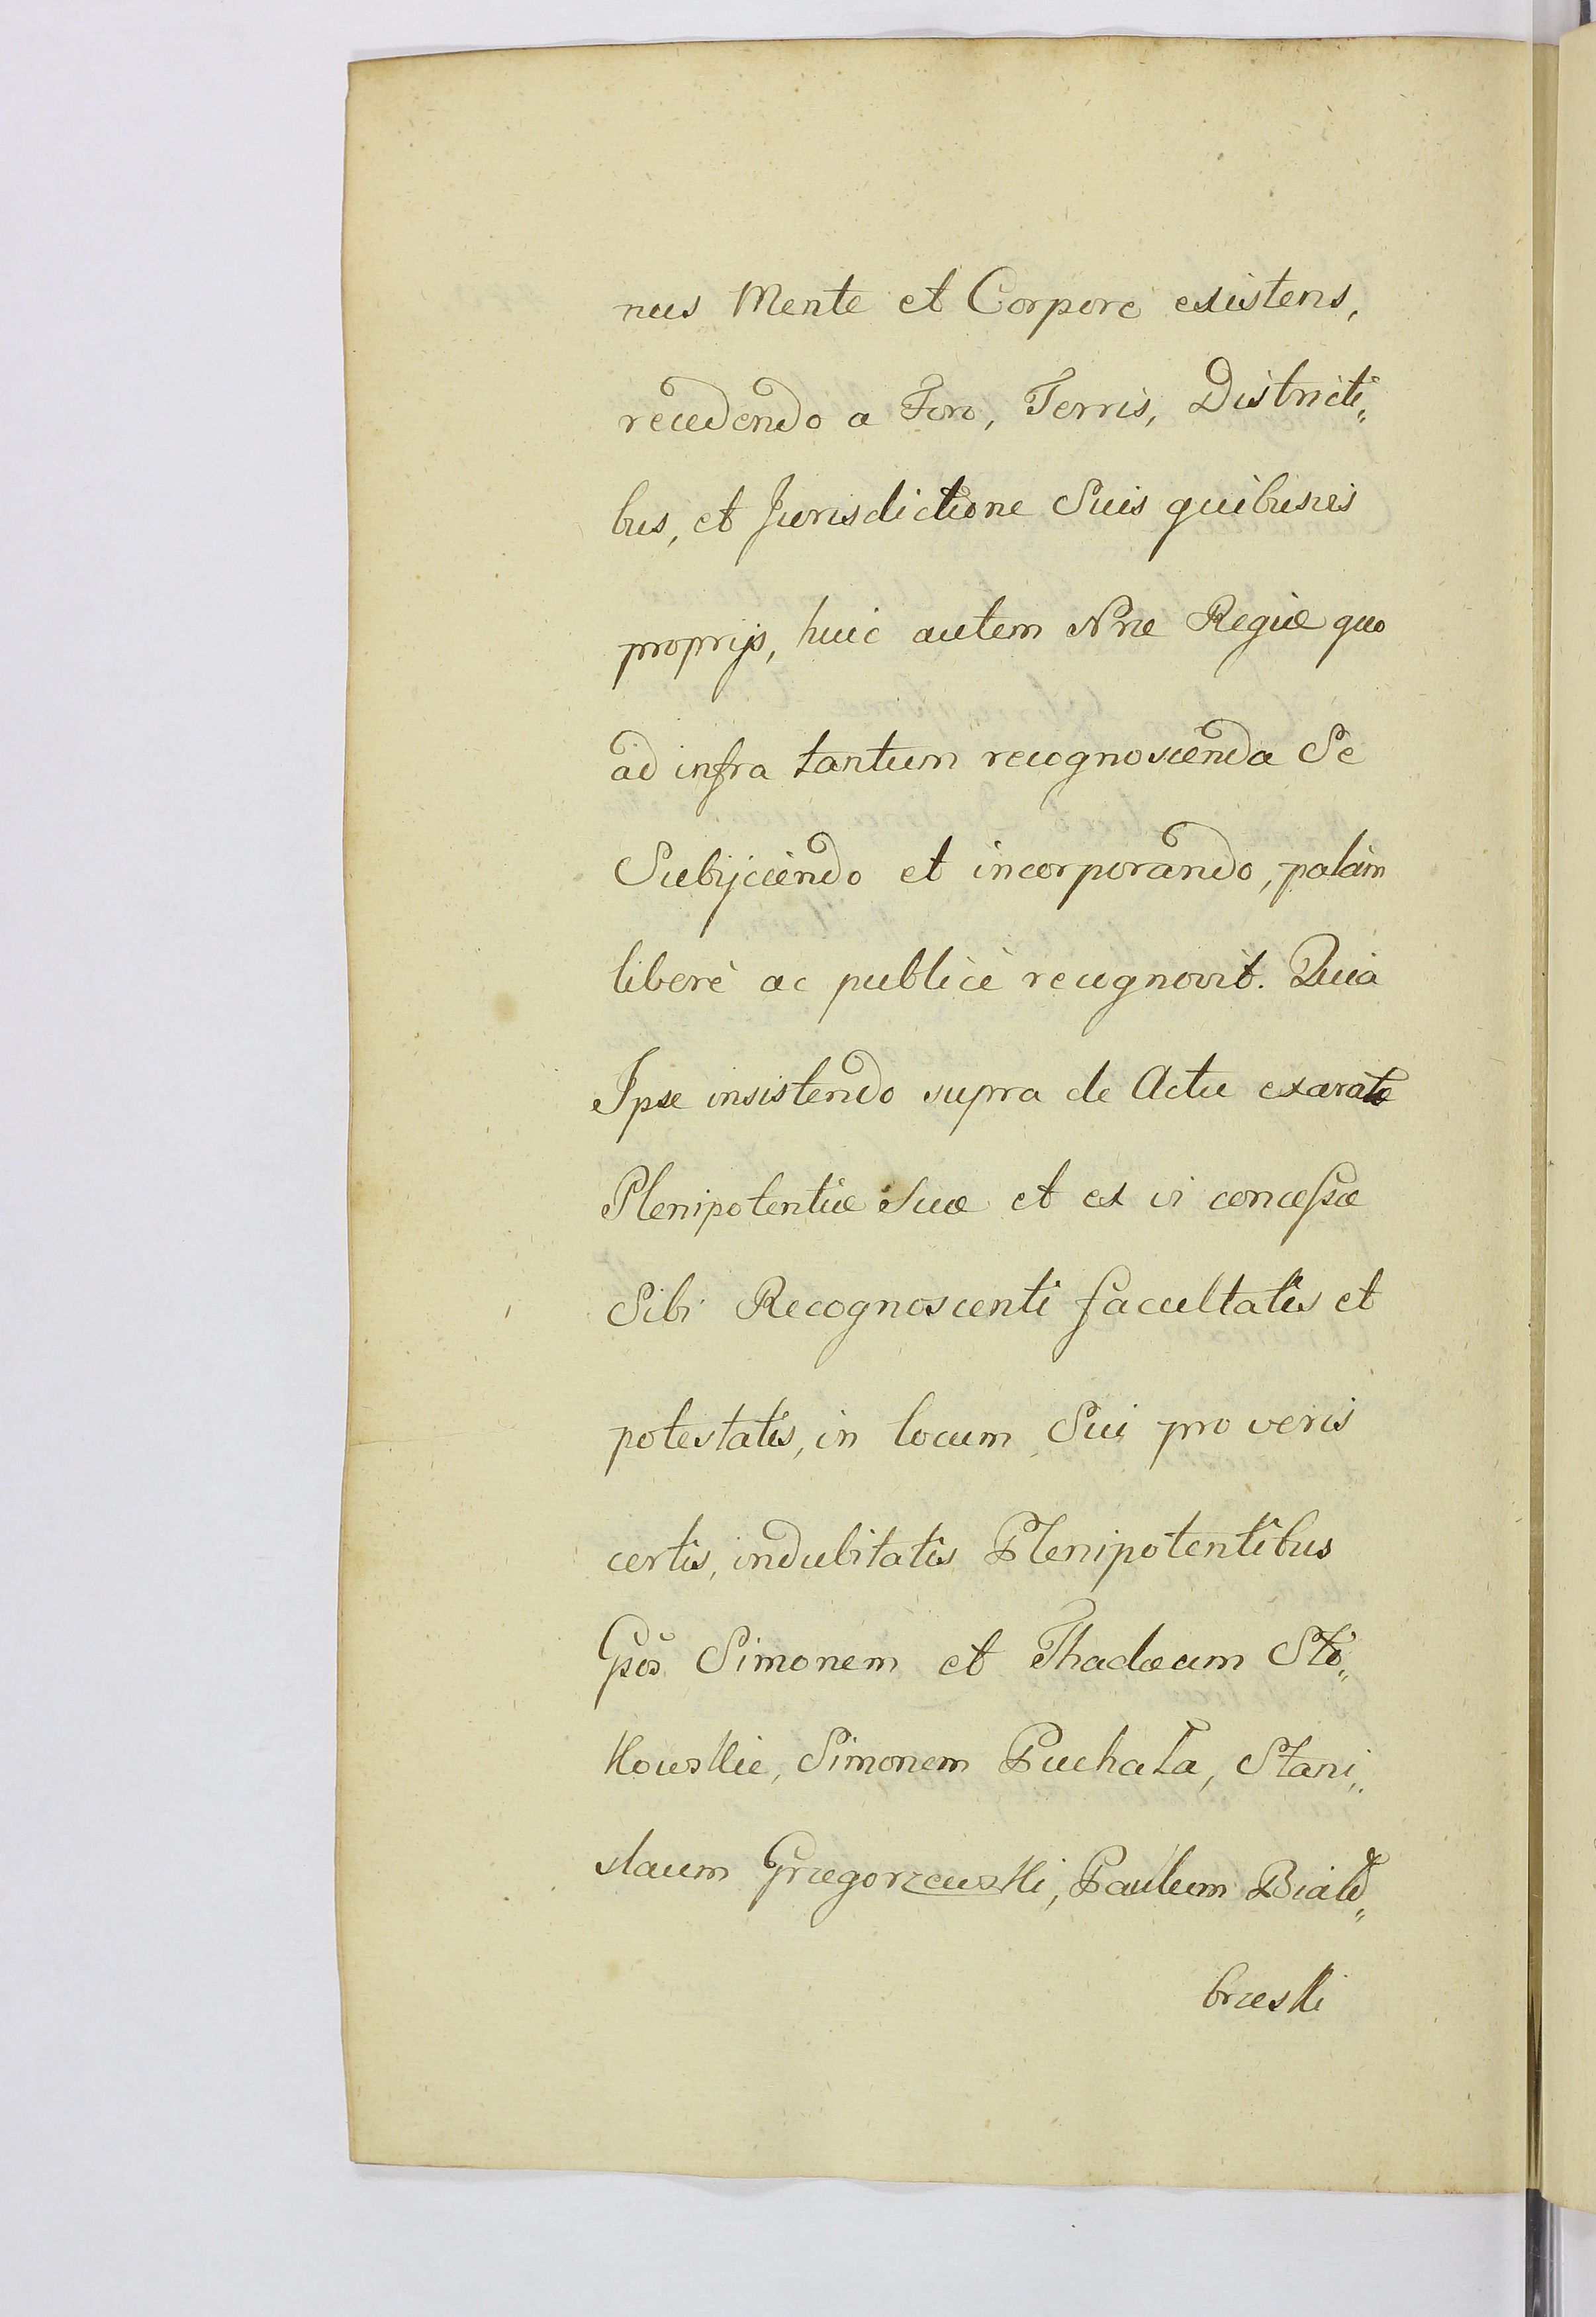 nus Mente et Corpore existens,
recedendo a Foro, Terris, Districti„
bus, et Jurisdictione Suis quibusvis
proprijs, huic autem Nrae Regiae quo
ad infra tantum recognoscenda Se
Subijciendo et incorporando, palàm
liberè ac publicè recognovit. Quia
Ipse insistendo supra de Actu exarato
Plenipotentiae Suae et ex vi concessae
Sibi Recognoscenti facultatis et
potestatis, in locum Sui pro veris
certis, indubitatis Plenipotentibus
Gsos Simonem et Thadaeum Sto„
kowskie, Simonem Puchała, Stani„
slaum Grzegorzewski, Paulum Biało„
brzeski